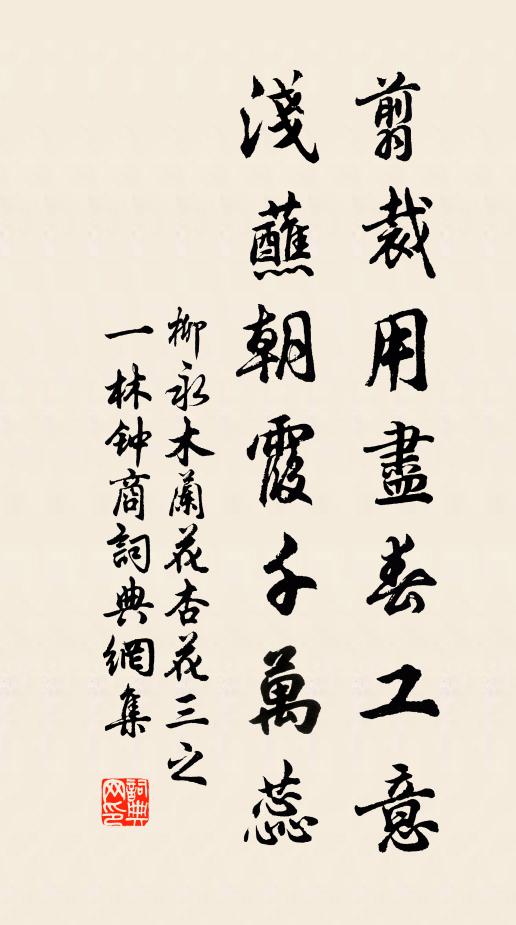 翦裁用盡春工意
淺蘸朝霞千萬蕊
柳永木蘭花杏花三之
一林钟商詞典網集
詞典网印